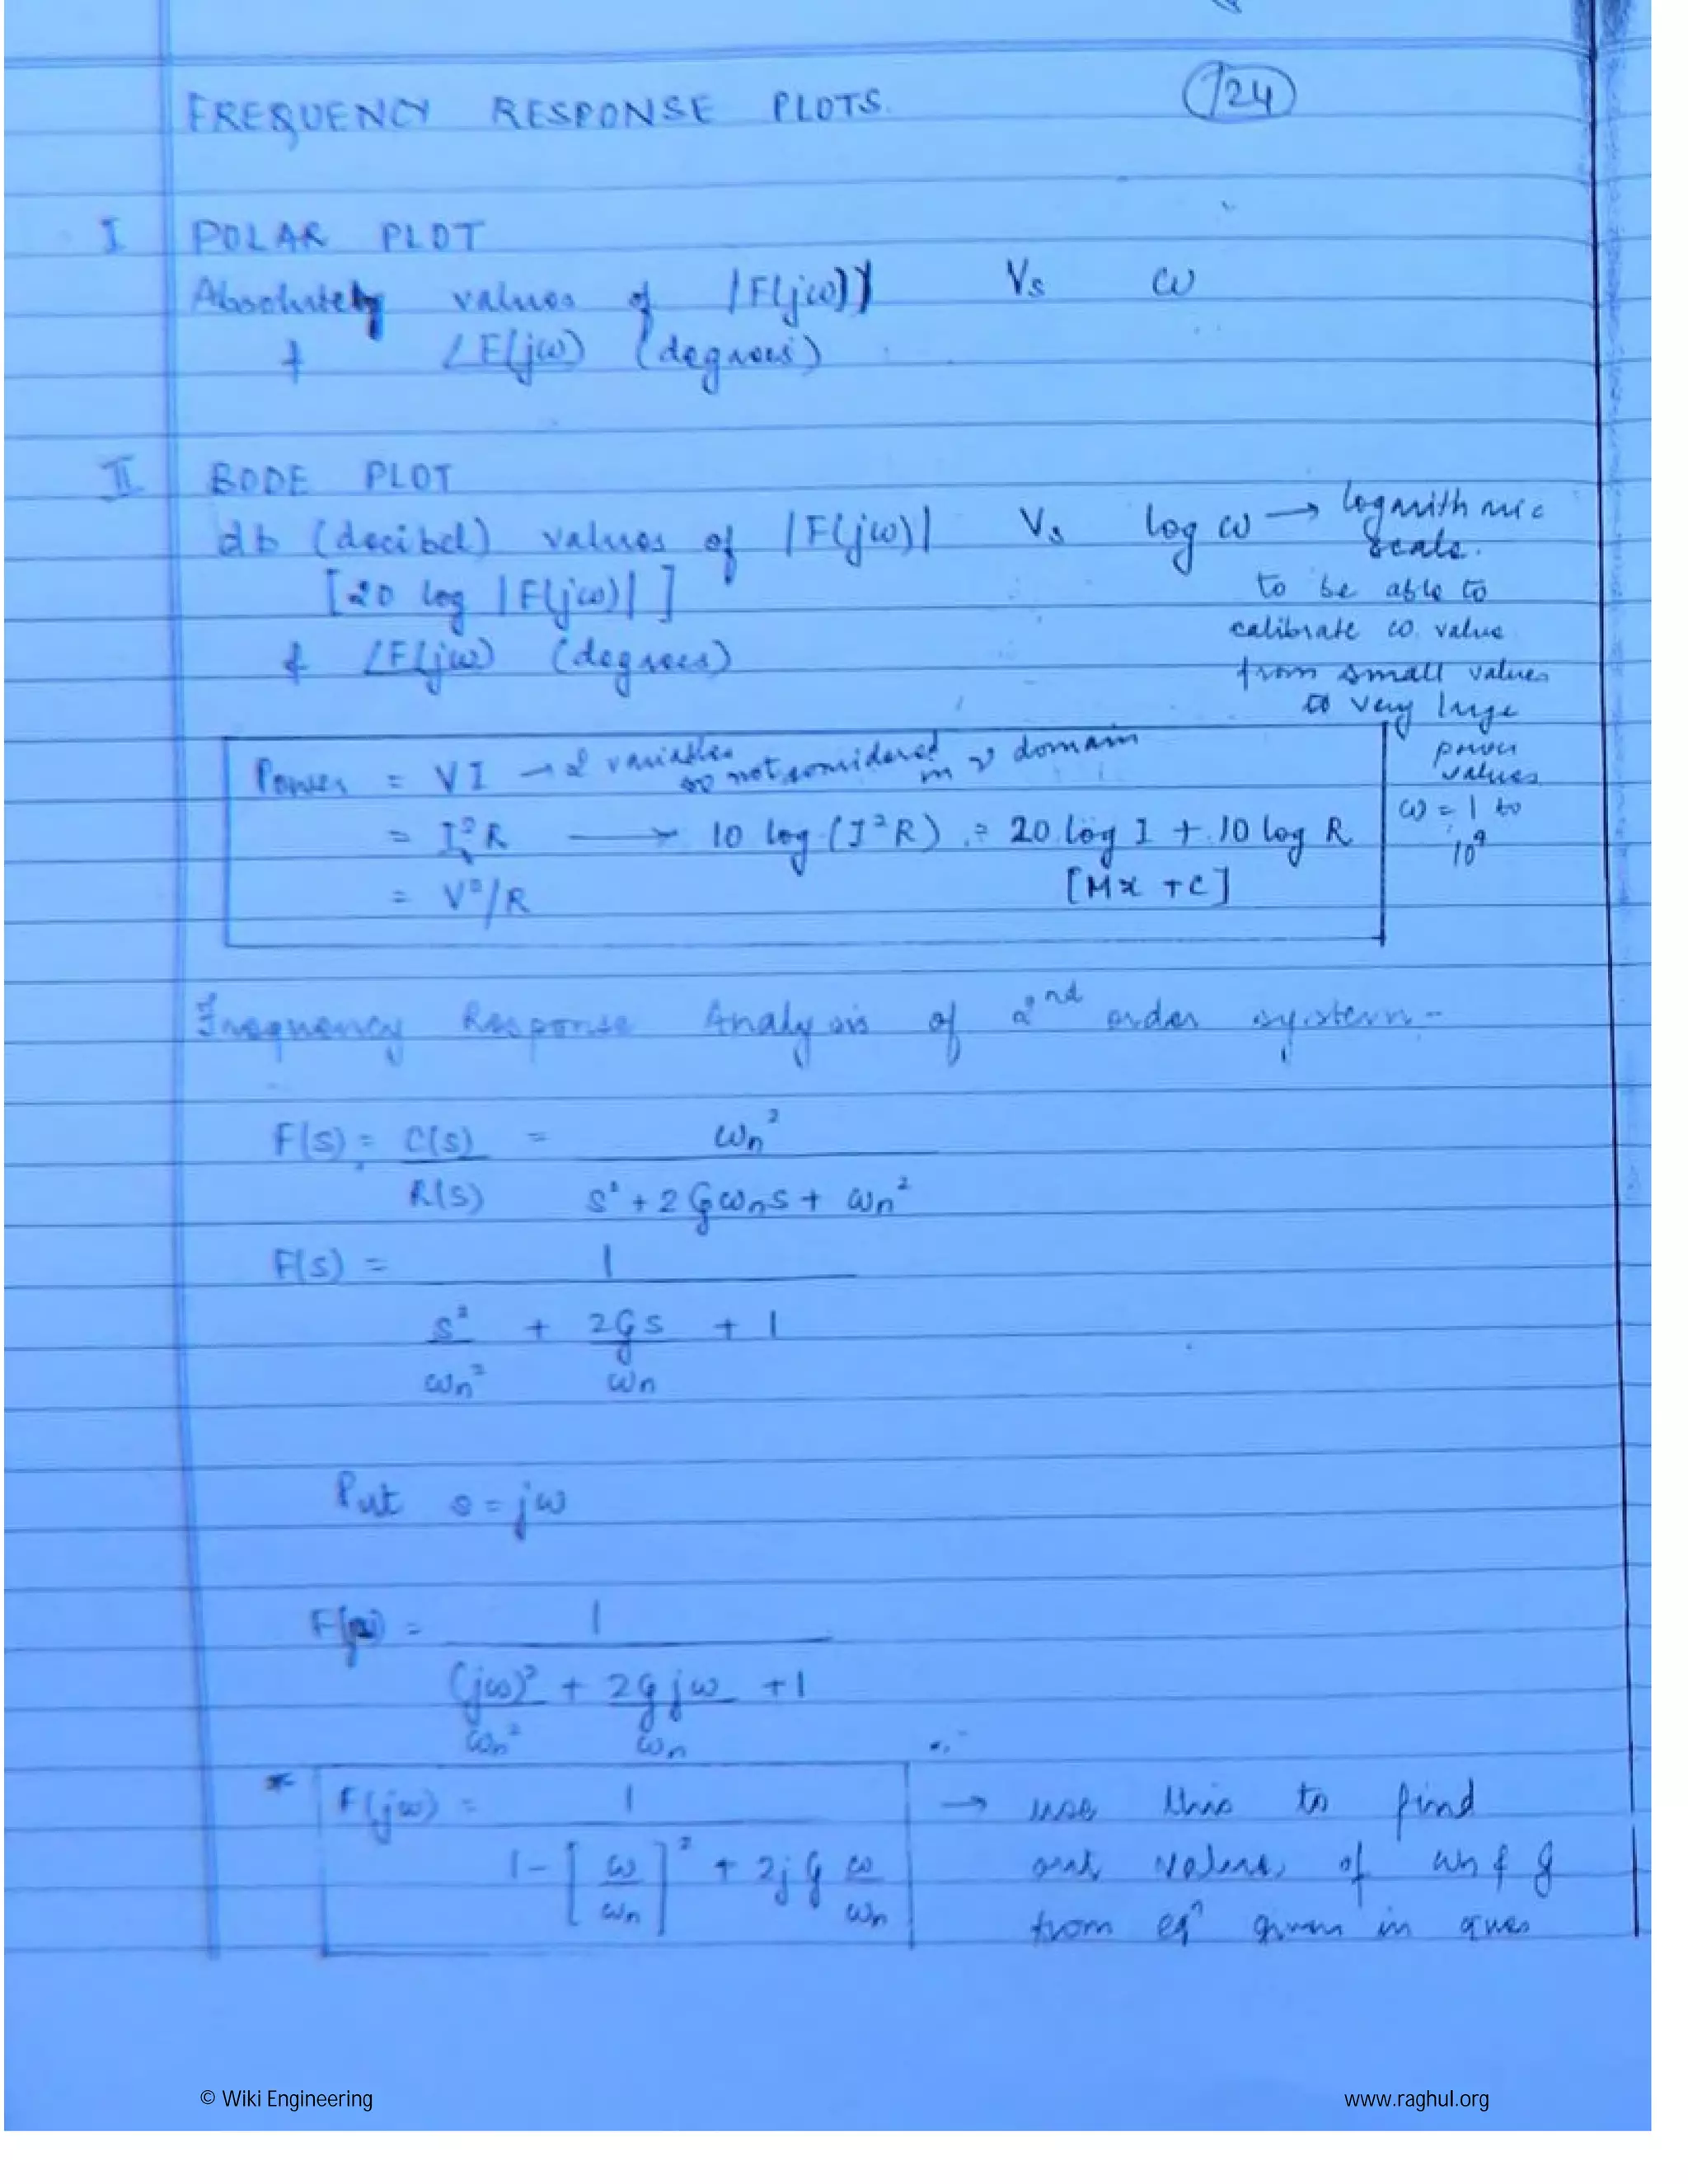 FREQUENCY RESPONSE PLOTS. 124
I POLAR PLOT
Absolutely values of |F(jω)| Vs ω
& ∠F(jω) (degrees)
II BODE PLOT
db (decibel) values of |F(jω)| Vs log ω → logarithmic scale.
[20 log |F(jω)|]
& ∠F(jω) (degrees)
to be able to
calibrate ω value
from small values
to very large
power
values
ω = 1 to
10⁹
Power = VI → 2 variables so not considered in domain
= I²R → 10 log (I²R) = 20 log I + 10 log R
= V²/R [Mx + C]
Frequency Response Analysis of 2nd order system -
F(s) = C(s)/R(s) = ωn² / (s² + 2ζωns + ωn²)
F(s) = 1 / (s²/ωn² + 2ζs/ωn + 1)
Put s = jω
= 1 / ((jω)²/ωn² + 2ζjω/ωn + 1)
* F(jω) = 1 / (1 - [ω/ωn]² + 2jζ ω/ωn)
→ use this to find
out values of ωn & ζ
from eqn given in ques
© Wiki Engineering www.raghul.org